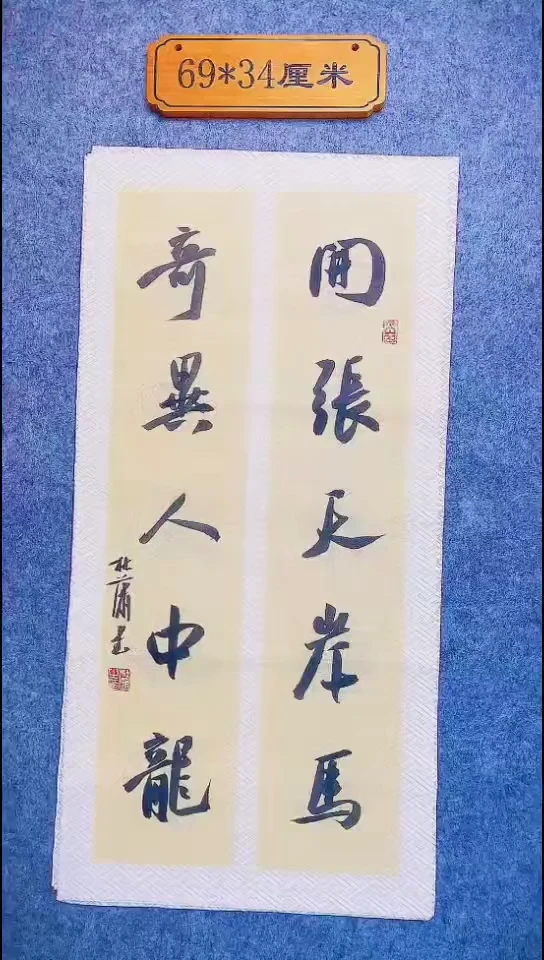 69*34厘米
開張天岸馬
奇異人中龍